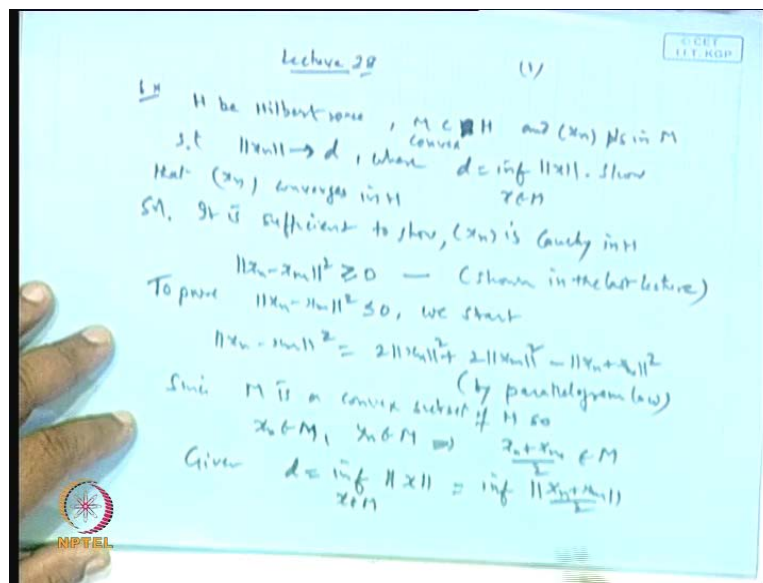 Lecture 28 (1)
© CET
I.I.T. KGP
H be Hilbert space, M ⊂ H and (xn) is in M
convex
s.t ||xn|| → d, where d = inf ||x||. Show
x∈M
that (xn) converges in H
Sol. It is sufficient to show, (xn) is Cauchy in H
||xn - xm||² ≥ 0 — (shown in the last lecture)
To prove ||xn - xm||² ≤ 0, we start
||xn - xm||² = 2||xn||² + 2||xm||² - ||xn + xm||²
(by parallelogram law)
Since M is a convex subset of H so
xn ∈ M, xm ∈ M ⇒ xn + xm / 2 ∈ M
Given d = inf ||x|| = inf ||xn + xm / 2||
x∈M
NPTEL